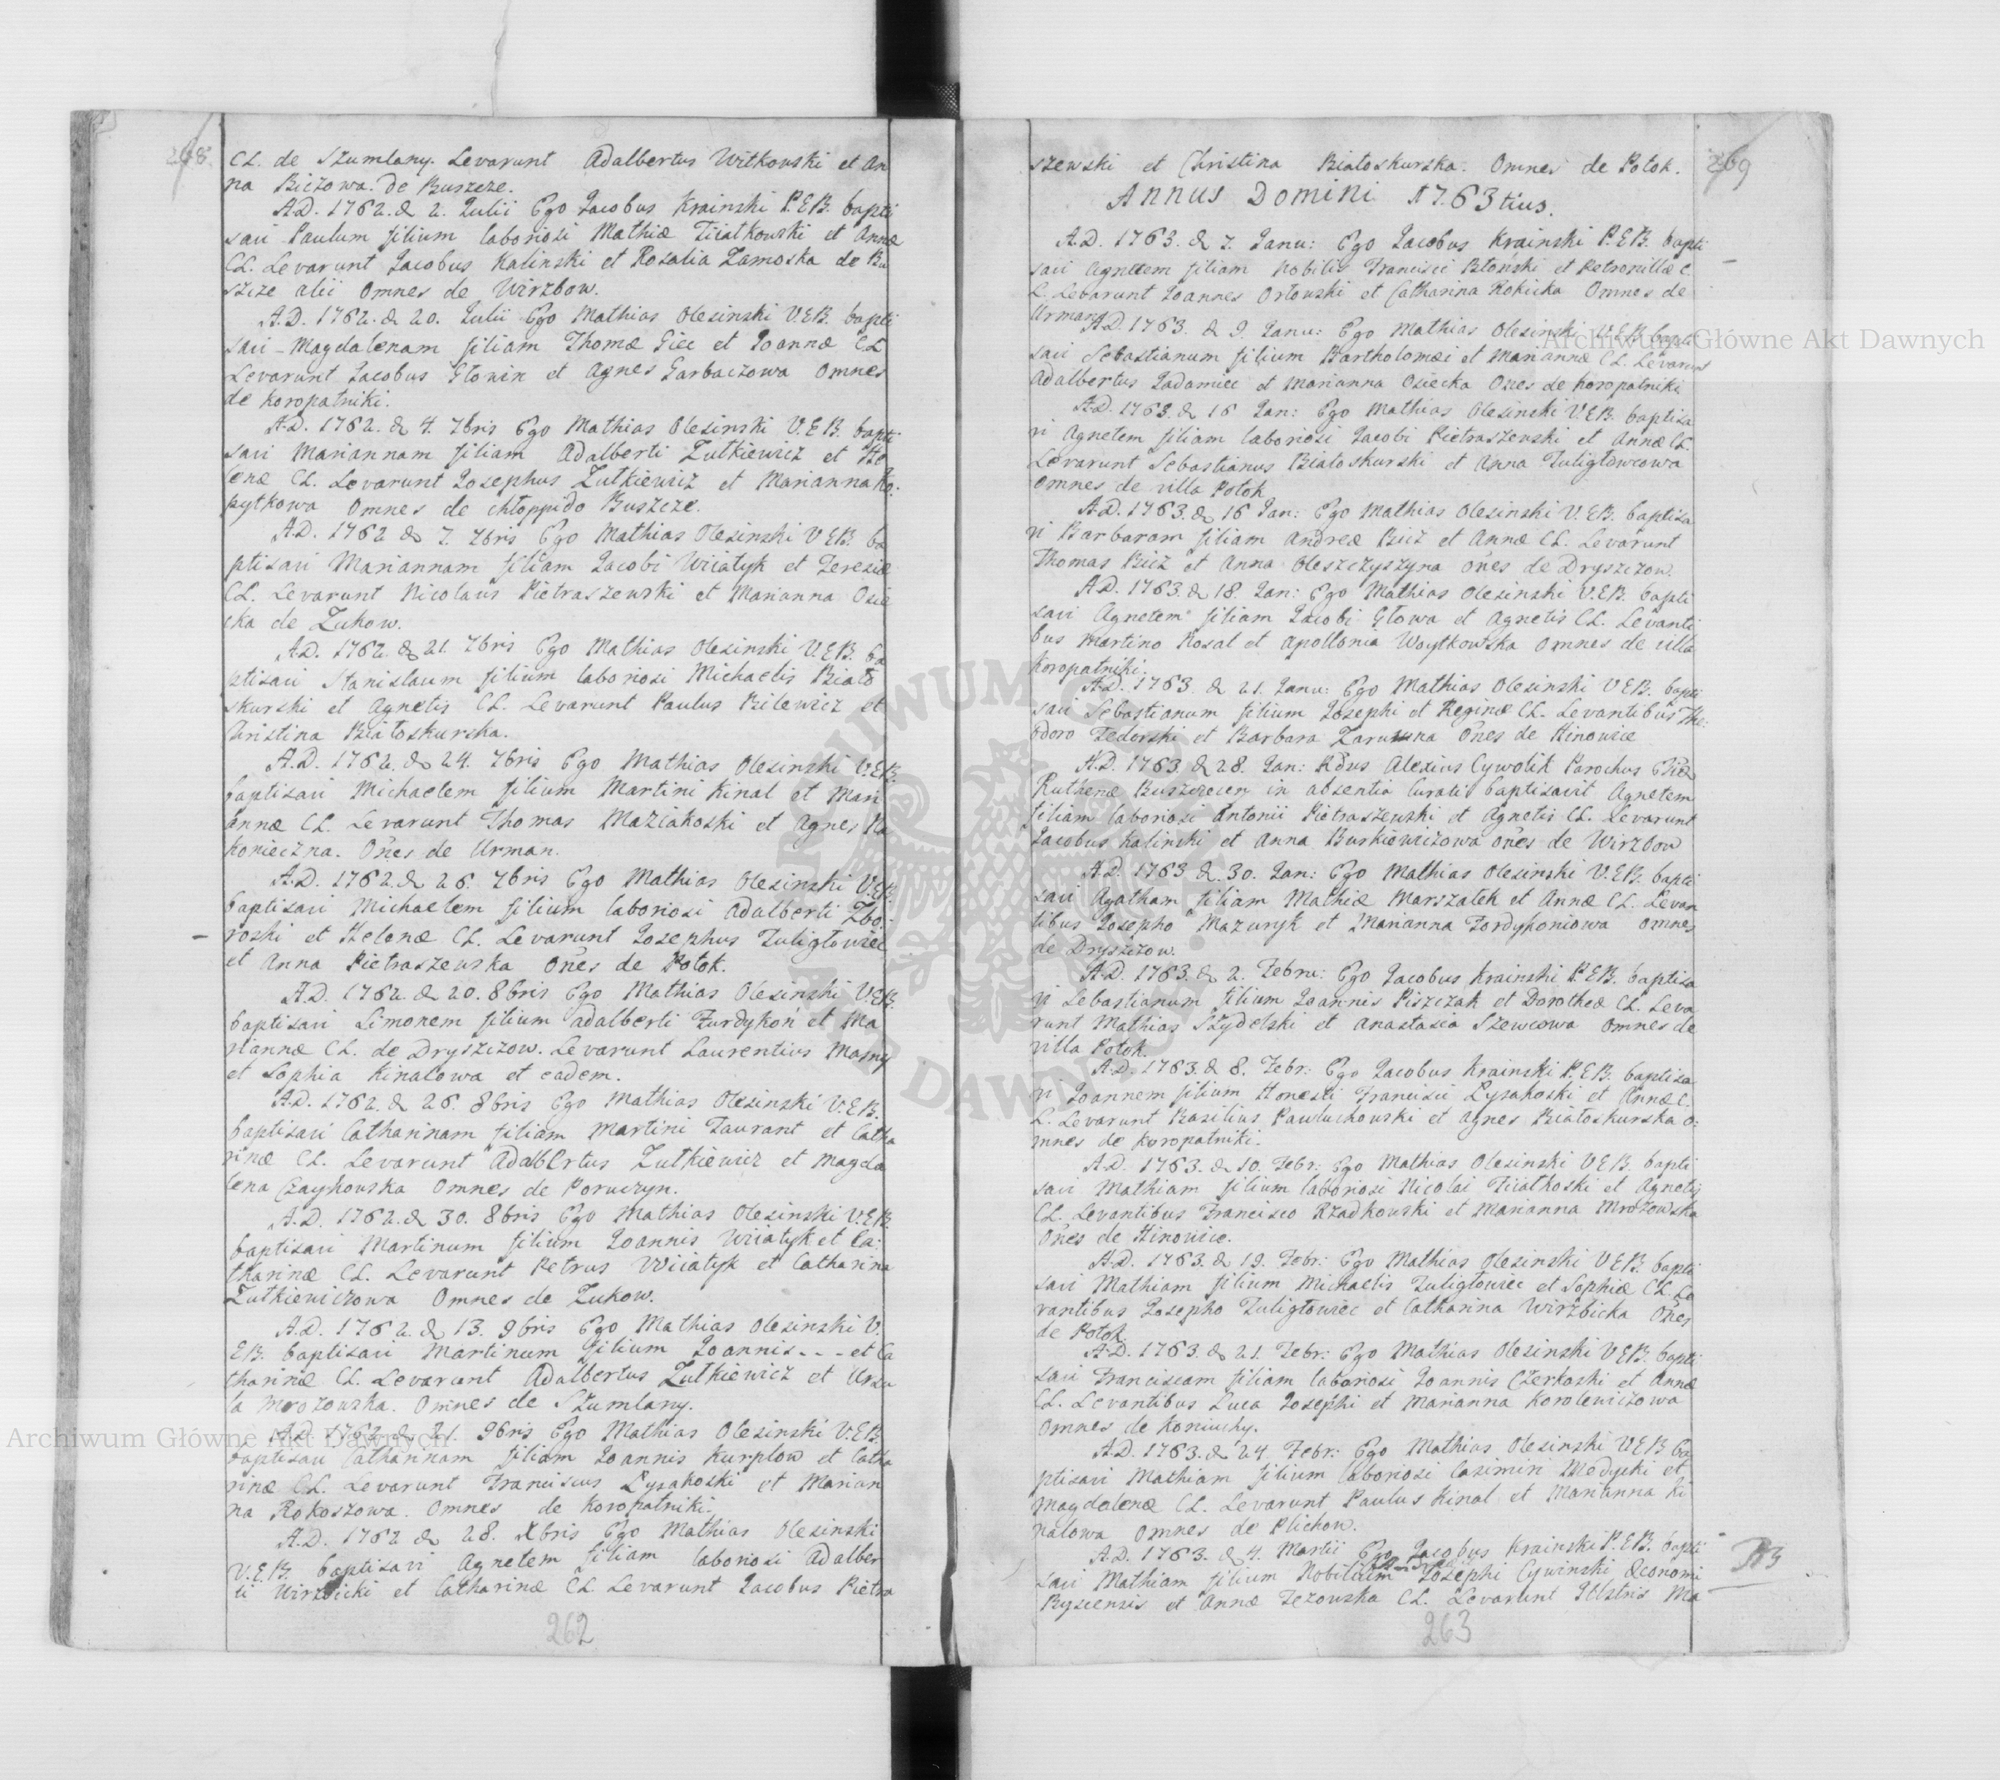 268.
CL. de Szumlany. Levarunt Adalbertus Witkowski et An
na Biczowa. de Buszcze.
A.D. 1762. d. 2. Julii Ego Jacobus Krainski P.E.B. bapti
savi Paulum filium laboriosi Mathiæ Fiiatkowski et Annæ
CL. Levarunt Jacobus Kalinski et Rosalia Zamoska de Bu
szcze alii Omnes de Wirzbow.
A.D. 1762. d. 20. Julii Ego Mathias Olesinski V.E.B. bapti
savi Magdalenam filiam Thomæ Giec et Joannæ CL
Levarunt Jacobus Głowin et Agnes Garbaczowa Omnes
de Koropatniki.
A.D. 1762. d. 4. 7bris Ego Mathias Olesinski V.E.B. bapti
savi Mariannam filiam Adalberti Zutkiewicz et He
lenæ CL. Levarunt Josephus Zutkiewicz et Marianna Ko
pytkowa Omnes de chłoppido Buszcze.
A.D. 1762 d. 7. 7bris Ego Mathias Olesinski V.E.B. ba
ptisavi Mariannam filiam Jacobi Wiiatyk et Teresiæ
CL. Levarunt Nicolaus Pietraszewski et Marianna Osie
cka de Zukow.
A.D. 1762. d. 21. 7bris Ego Mathias Olesinski V.E.B. ba
ptisavi Stanislaum filium laboriosi Michaelis Biało
skurski et Agnetis CL. Levarunt Paulus Bilewicz et
Christina Białoskurska.
A.D. 1762. d. 24. 7bris Ego Mathias Olesinski V.E.B.
baptisavi Michaelem filium Martini Kinal et Mari
annæ CL. Levarunt Thomas Maziakoski et Agnes Na
konieczna. Oñes de Urman.
A.D. 1762. d. 26. 7bris Ego Mathias Olesinski V.E.B.
baptisavi Michaelem filium laboriosi Adalberti Zbo
roski et Helenæ CL. Levarunt Josephus Tuligłowiec
et Anna Pietraszewska Oñes de Potok.
A.D. 1762. d. 20. 8bris Ego Mathias Olesinski V.E.B.
baptisavi Simonem filium Adalberti Furdykoń et Ma
riannæ CL. de Dryszczow. Levarunt Laurentius Masny
et Sophia Kinalowa et eadem.
A.D. 1762. d. 26. 8bris Ego Mathias Olesinski V.E.B.
baptisavi Catharinam filiam Martini Taurant et Catha
rinæ CL. Levarunt Adalbertus Zutkiewicz et Magda
lena Czaykowska Omnes de Poruczyn.
A.D. 1762. d. 30. 8bris Ego Mathias Olesinski V.E.B.
baptisavi Martinum filium Joannis Wiiatyk et Ca
tharinæ CL. Levarunt Petrus Wiiatyk et Catharina
Zutkiewiczowa Omnes de Zukow.
A.D. 1762. d. 13. 9bris Ego Mathias Olesinski V.
E.B. baptisavi Martinum filium Joannis - - - et Ca
tharinæ CL. Levarunt Adalbertus Zutkiewicz et Ursu
la Mrozowska. Omnes de Szumlany.
A.D. 1762. d. 21. 9bris Ego Mathias Olesinski V.E.B.
baptisavi Catharinam filiam Joannis Kurpłow et Catha
rinæ CL. Levarunt Franciscus Lysakoski et Marian
na Rokoszowa. Omnes de Koropatniki.
A.D. 1762 d. 28. Xbris Ego Mathias Olesinski
V.E.B. baptisavi Agnetem filiam laboriosi Adalber
ti Wirzbicki et Catharinæ CL Levarunt Jacobus Pietra
262
269
szewski et Christina Białoskurska. Omnes de Potok.
Annus Domini 1763tius.
A.D. 1763. d. 7. Janu: Ego Jacobus Krainski P.E.B. bapti
savi Agnetem filiam Nobilis Francisci Błoński et Petronillæ C.
L. Levarunt Joannes Orłowski et Catharina Rokicka Omnes de
Urman.
A.D. 1763. d. 9. Janu: Ego Mathias Olesinski V.E.B. bapti
savi Sebastianum filium Bartholomæi et Mariannæ CL. Levarunt
Adalbertus Jadamiec et Marianna Osiecka Oñes de Koropatniki
A.D. 1763. d. 16 Jan: Ego Mathias Olesinski V.E.B. baptisa
vi Agnetem filiam laboriosi Jacobi Pietraszewski et Annæ CL.
Levarunt Sebastianus Białoskurski et Anna Tuligłowcowa
Omnes de villa Potok
A.D. 1763. d. 16 Jan: Ego Mathias Olesinski V.E.B. baptisa
vi Barbaram filiam Andreæ Bicz et Annæ CL. Levarunt
Thomas Bicz et Anna Oleszczyszyna Oñes de Dryszczow.
A.D. 1763. d. 18. Jan: Ego Mathias Olesinski V.E.B. bapti
savi Agnetem filiam Jacobi Głowa et Agnetis CL. Levanti
bus Martino Kosal et Apollonia Woytkowska Omnes de villa
Koropatniki.
A.D. 1763. d. 21. Janu: Ego Mathias Olesinski V.E.B. bapti
savi Sebastianum filium Josephi et Reginæ CL. Levantibus The
odoro Federski et Barbara Oñes de Hinowice
A.D. 1763. d. 28. Jan: Rdus Alexius Cywolik Parochus Ecclæ
Ruthenæ Buszczecen in absentia Curati baptisavit Agnetem
filiam laboriosi Antonii Pietraszewski et Agnetis CL. Levarunt
Jacobus Kalinski et Anna Burkiewiczowa Oñes de Wirzbow
A.D. 1763 d. 30. Jan: Ego Mathias Olesinski V.E.B. bapti
savi Agatham filiam Mathiæ Marszałek et Annæ CL. Levan
tibus Josepho Mazuryk et Marianna Fordykoniowa Omnes
de Dryszczow.
A.D. 1763. d. 2. Febru: Ego Jacobus Krainski P.E.B. baptisa
vi Sebastianum filium Joannis Piszczak et Dorotheæ CL. Leva
runt Mathias Szydelski et Anastasia Szewcowa Omnes de
villa Potok.
A.D. 1763. d. 8. Febr: Ego Jacobus Krainski P.E.B. baptisa
vi Joannem filium Honesti Francisci Lysakoski et Annæ C.
L. Levarunt Basilius Pawluchowski et Agnes Białoskurska O
mnes de Koropatniki.
A.D. 1763. d. 10. Febr: Ego Mathias Olesinski V.E.B. bapti
savi Mathiam filium laboriosi Nicolai Fiiatkoski et Agnetis
CL. Levantibus Francisco Rzadkowski et Marianna Mrozowska
Oñes de Hinowice.
A.D. 1763. d. 19. Febr: Ego Mathias Olesinski V.E.B. bapti
savi Mathiam filium Michaelis Tuligłowiec et Sophiæ CL. Le
vantibus Josepho Tuligłowiec et Catharina Wirzbicka Oñes
de Potok.
A.D. 1763. d. 21. Febr: Ego Mathias Olesinski V.E.B. bapti
savi Franciscam filiam laboriosi Joannis Czerkoski et Annæ
CL. Levantibus Luca Josephi et Marianna Korolewiczowa
Omnes de Koniuchy.
A.D. 1763. d. 24 Febr: Ego Mathias Olesinski V.E.B. ba
ptisavi Mathiam filium laboriosi Casimiri Medycki et
Magdalenæ CL. Levarunt Paulus Kinal et Marianna Ki
nalowa Omnes de Plichow.
A.D. 1763. d. 4. Martii Ego Jacobus Krainski P.E.B. bapti
savi Mathiam filium Nobilium Josephi Cywinski Œconomi
Bysciensis et Annæ Jezowska CL. Levarunt Illstris Ma
263
Archiwum Główne Akt Dawnych
Archiwum Główne Akt Dawnych
ARCHIWUM GŁÓWNE AKT DAWNYCH